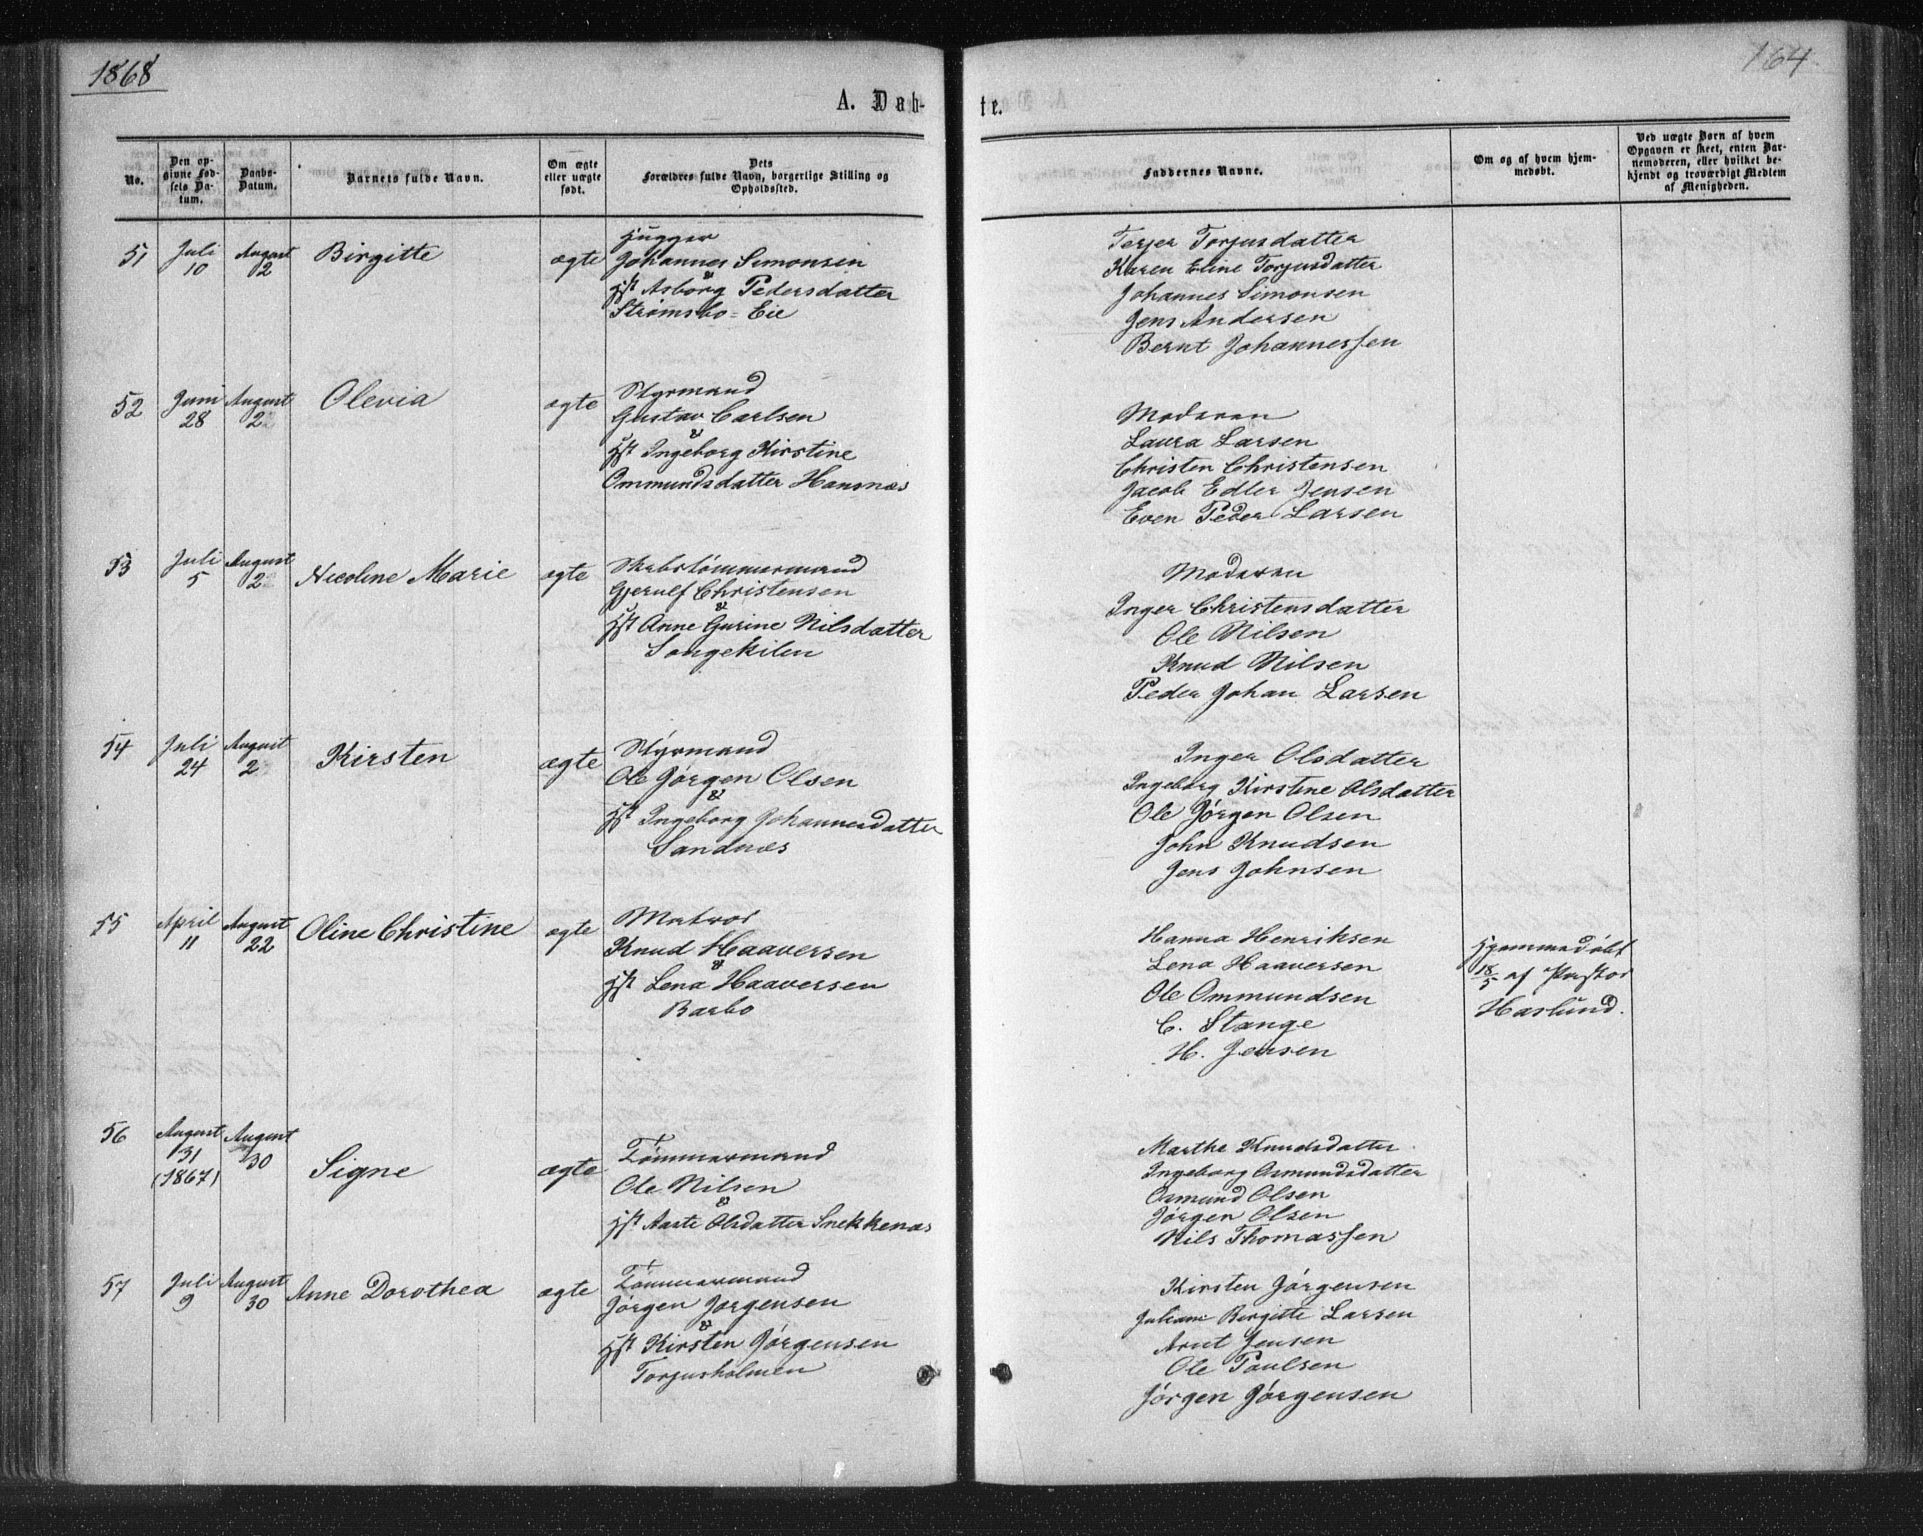 1868
164
A. Døb-
te.
No.
Den op-
givne Fød-
sels Da-
tum.
Daabs-
Datum.
Barnets fulde Navn.
Om ægte
eller uægte
født.
Dets
Forældres fulde Navn, borgerlige Stilling og
Opholdssted.
Faddernes Navne.
Om og af hvem hjem-
medøbt.
Ved uægte Børn af hvem
Opgaven er skeet, enten Bar-
nemoderen, eller hvilket be-
kjendt og troværdigt Medlem
af Menigheden.
51
Juli
10
August
2
Birgitte
ægte
Hugger
Johannes Simonsen
&
Hst Asborg Pedersdatter
Strømsbo-Eie
Terjer Torjusdatter
Karen Eline Torjusdatter
Johannes Simonsen
Jens Andersen
Bernt Johannessen
52
Juni
28
August
2
Olevia
ægte
Styrmand
Gustav Carlsen
&
Hst Ingeborg Kirstine
Ommundsdatter Hansnæs
Moderen
Laura Larsen
Christen Christensen
Jacob Edler Jensen
Even Peder Larsen
53
Juli
5
August
2
Nicoline Marie
ægte
Skibstømmermand
Gjerulf Christensen
&
Hst Anne Gurine Nilsdatter
Songekilen
Moderen
Inger Christensdatter
Ole Nilsen
Knud Nilsen
Peder Johan Larsen
54
Juli
24
August
2
Kirsten
ægte
Styrmand
Ole Jørgen Olsen
&
Hst Ingeborg Johannesdatter
Sandnæs
Inger Olsdatter
Ingeborg Kirstine Olsdatter
Ole Jørgen Olsen
John Knudsen
Jens Johnsen
55
April
11
August
22
Oline Christine
ægte
Matros
Knud Haaversen
&
Hst Lena Haaversen
Barbo
Hanna Henriksen
Lena Haaversen
Ole Ommundsen
C. Stange
H. Jensen
Hjemmedøbt
18/5 af Pastor
Haslund.
56
August
31
(1867)
August
30
Signe
ægte
Tømmermand
Ole Nilsen
&
Hst Aaste Olsdatter Snekkenæs
Marthe Knudsdatter
Ingeborg Osmundsdatter
Osmund Olsen
Jørgen Olsen
Nils Thomassen
57
Juli
9
August
30
Anne Dorothea
ægte
Tømmermand
Jørgen Jørgensen
&
Hst Kirsten Jørgensen
Torjusholmen
Kirsten Jørgensen
Juliane Birgitte Larsen
Arnt Jensen
Ole Paulsen
Jørgen Jørgensen